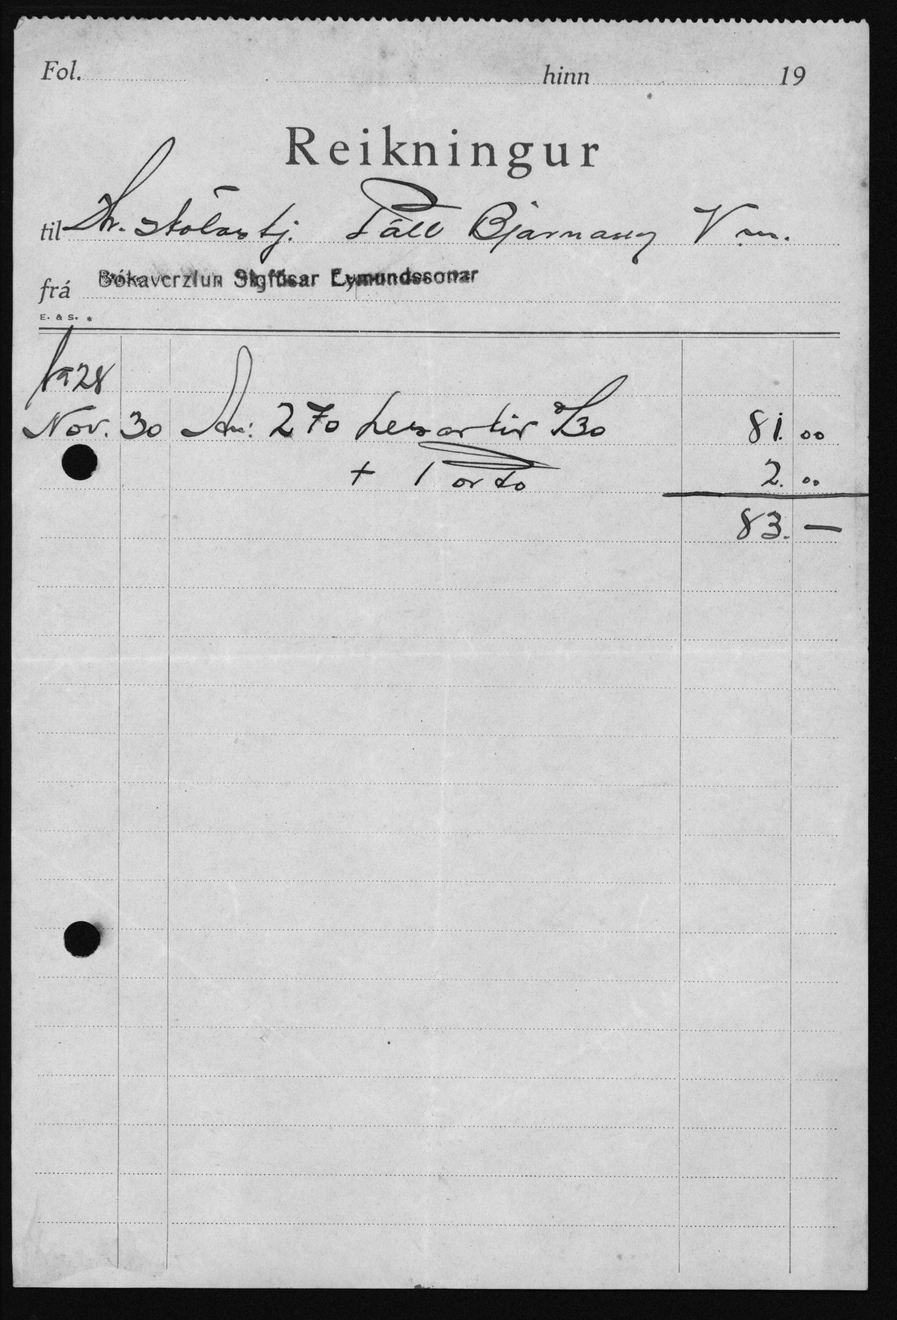 Fol. hinn 19
Reikningur
til Hr. skólastj. Páll Bjarnason Vm.
frá Bókaverzlun Sigfúsar Eymundssonar
E. & S. *
1928
Nov. 30 An: 270 lesarkir /30 81.00
+ Porto 2.00
83. —